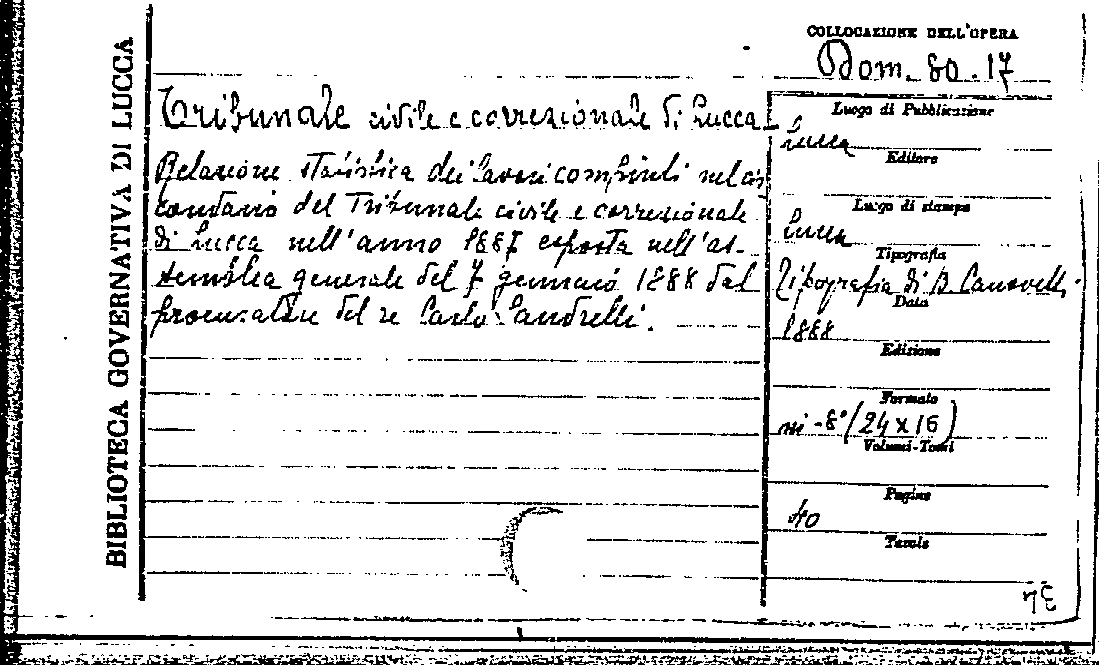 BIBLIOTECA GOVERNATIVA DI LUCCA
COLLOCAZIONE DELL'OPERA
Dom. 80.17
Tribunale civile e correzionale di Lucca
Relazione statistica dei lavori compiuti nel cir
condario del Tribunale civile e correzionale
di Lucca nell'anno 1887 esposta nell'as-
semblea generale del 7 gennaio 1888 dal
procuratore del re Carlo Landrelli.
Luogo di Pubblicazione
Lucca
Editore
Luogo di stampa
Lucca
Tipografia
Tipografia di B. Canovetti
Data
1888
Edizione
Formato
in-8° (24x16)
Volumi-Tomi
Pagine
40
Tavole